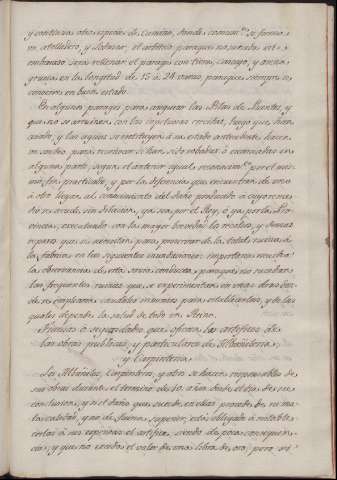 y contiene otra especie de Caxeta, donde comunm.te se forma
un atolladero, y
embarazo será rellenar el parage con tierra, cascajo y arena
gruesa en la longitud de 15 á 24 varas para que siempre se
conserve en buen estado.
En algunos parages para asegurar las Pilas de Puentes, y
que no se arruinen con las impetuosas crecidas, luego que han
cesado, y las aguas se restituyen á su estado antecedente, hacen
un sondeo, para reconocer si han sido robadas ó comovidas en
alguna parte, segun el anterior igual reconocim.to por el mis-
mo fin practicado, y por la diferencia que encuentran de uno
á otro llegan al conocimiento del daño producido, á cuyo reme-
dio se acude sin dilacion, ya sea por el Rey, ó ya por la Pro-
vincia, executando con la mayor brevedad los recalzos, y demas
reparos que se necesitan para preservar de la total ruina á
la fabrica en las siguientes inundaciones: importaria mucho
la observancia de esta sabia conducta, para que no sucedan
las frequentes ruinas que se experimentan en unas obras don-
de se emplearon caudales inmensos para establecerlas, y de las
quales depende la salud de todo un Reino.
Perjuicios ó seguridades que ofrecen los artefices de
las obras publicas, y particulares de Albañileria,
y Carpinteria.
Los Albañiles, Carpinteros, y otros se hacen responsables de
sus obras durante el termino de 10. años desde el dia de su
conclusion, y si el daño que sucede en ellas procede de su ma-
la calidad, y no de fuerza superior, está obligado á restable-
cerlas á sus expensas el artifice, siendo de poca consequen-
cia, y que no exceda el valor de una libra de oro; pero si